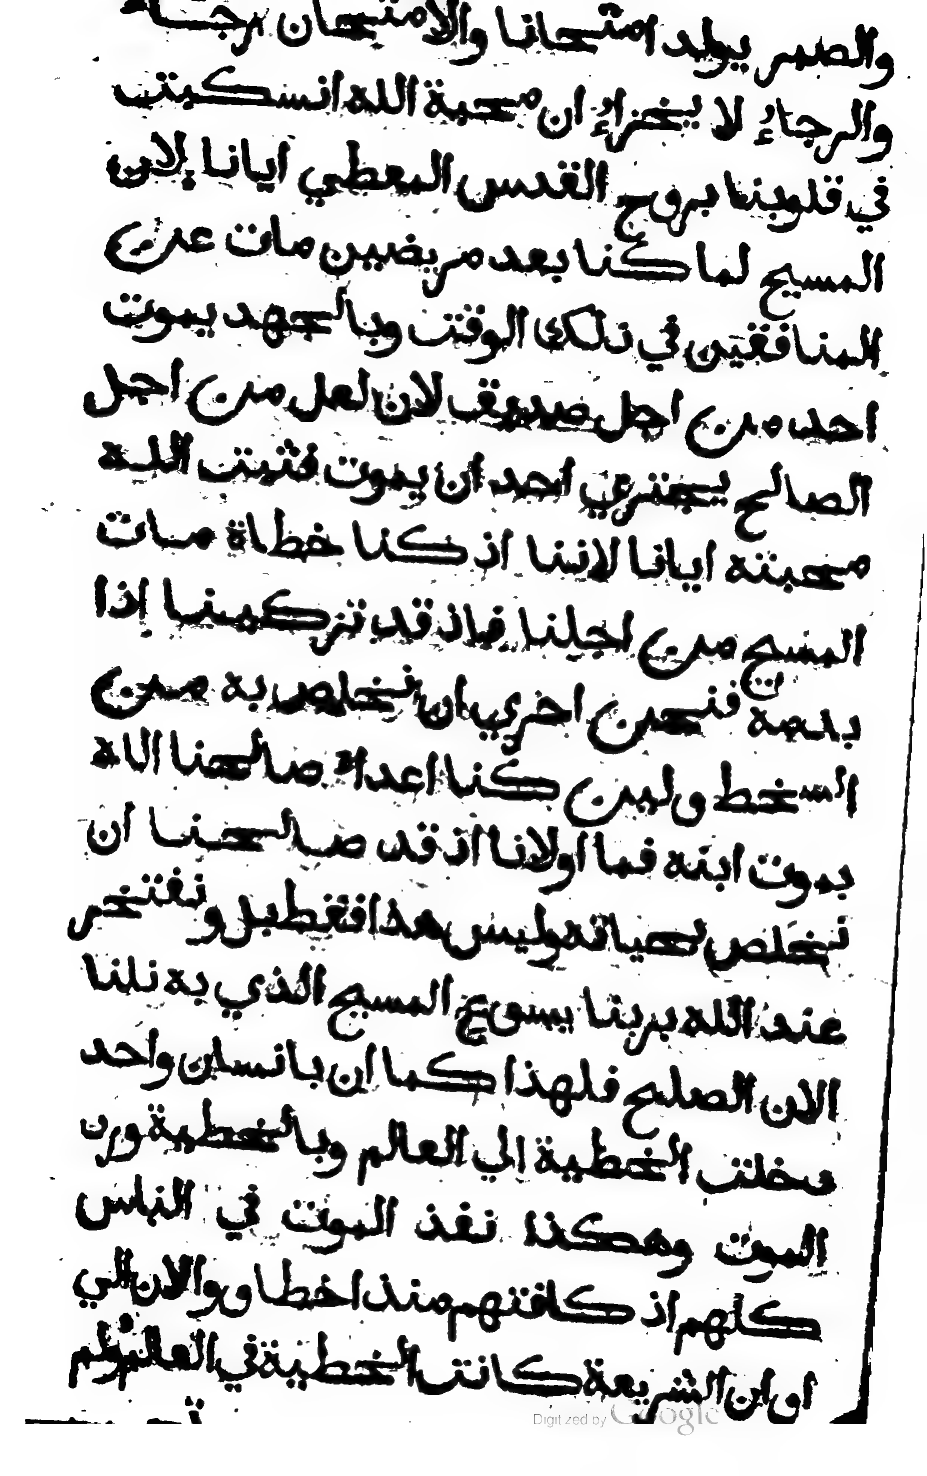 والصبر يولد امتحانا والامتحان رجاء
والرجاءُ لا يخزاءُ ان محبة الله انسكبت
في قلوبنا بروح القدس المعطي ايانا لان
المسيح لما كنا بعد مريضين مات عن
المنافقين في ذلك الوقت وبالجهد يموت
احد من اجل صديق لان لعل من اجل
الصالح يجتري احد ان يموت فثبت الله
محبته ايانا لاننا اذ كنا خطاة مات
المسيح من اجلنا فاذ قد تزكينا اذا
بدمه فنحن احري ان نخلص به من
السخط ولين كنا اعداء صالحنا الاه
بموت ابنه فما اولانا اذ قد صالحنا ان
نخلص بحياته وليس هذا فقط بل ونفتخر
عند الله بربنا يسوع المسيح الذي به نلنا
الان الصلح فلهذا كما ان بانسان واحد
دخلت الخطية الي العالم وبالخطية
الموت وهكذا نفذ الموت في الناس
كلهم اذ كافتهم منذ اخطاوو الان الي
اوان الشريعة كانت الخطية في العالم ولم
Digitized by Google